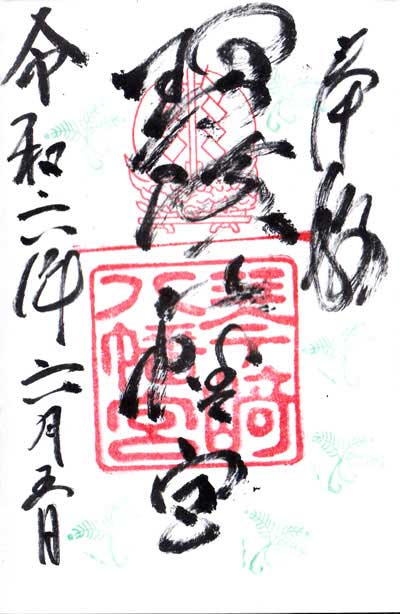 奉拝
琴崎八幡宮
令和六年六月五日
琴崎
八幡宮